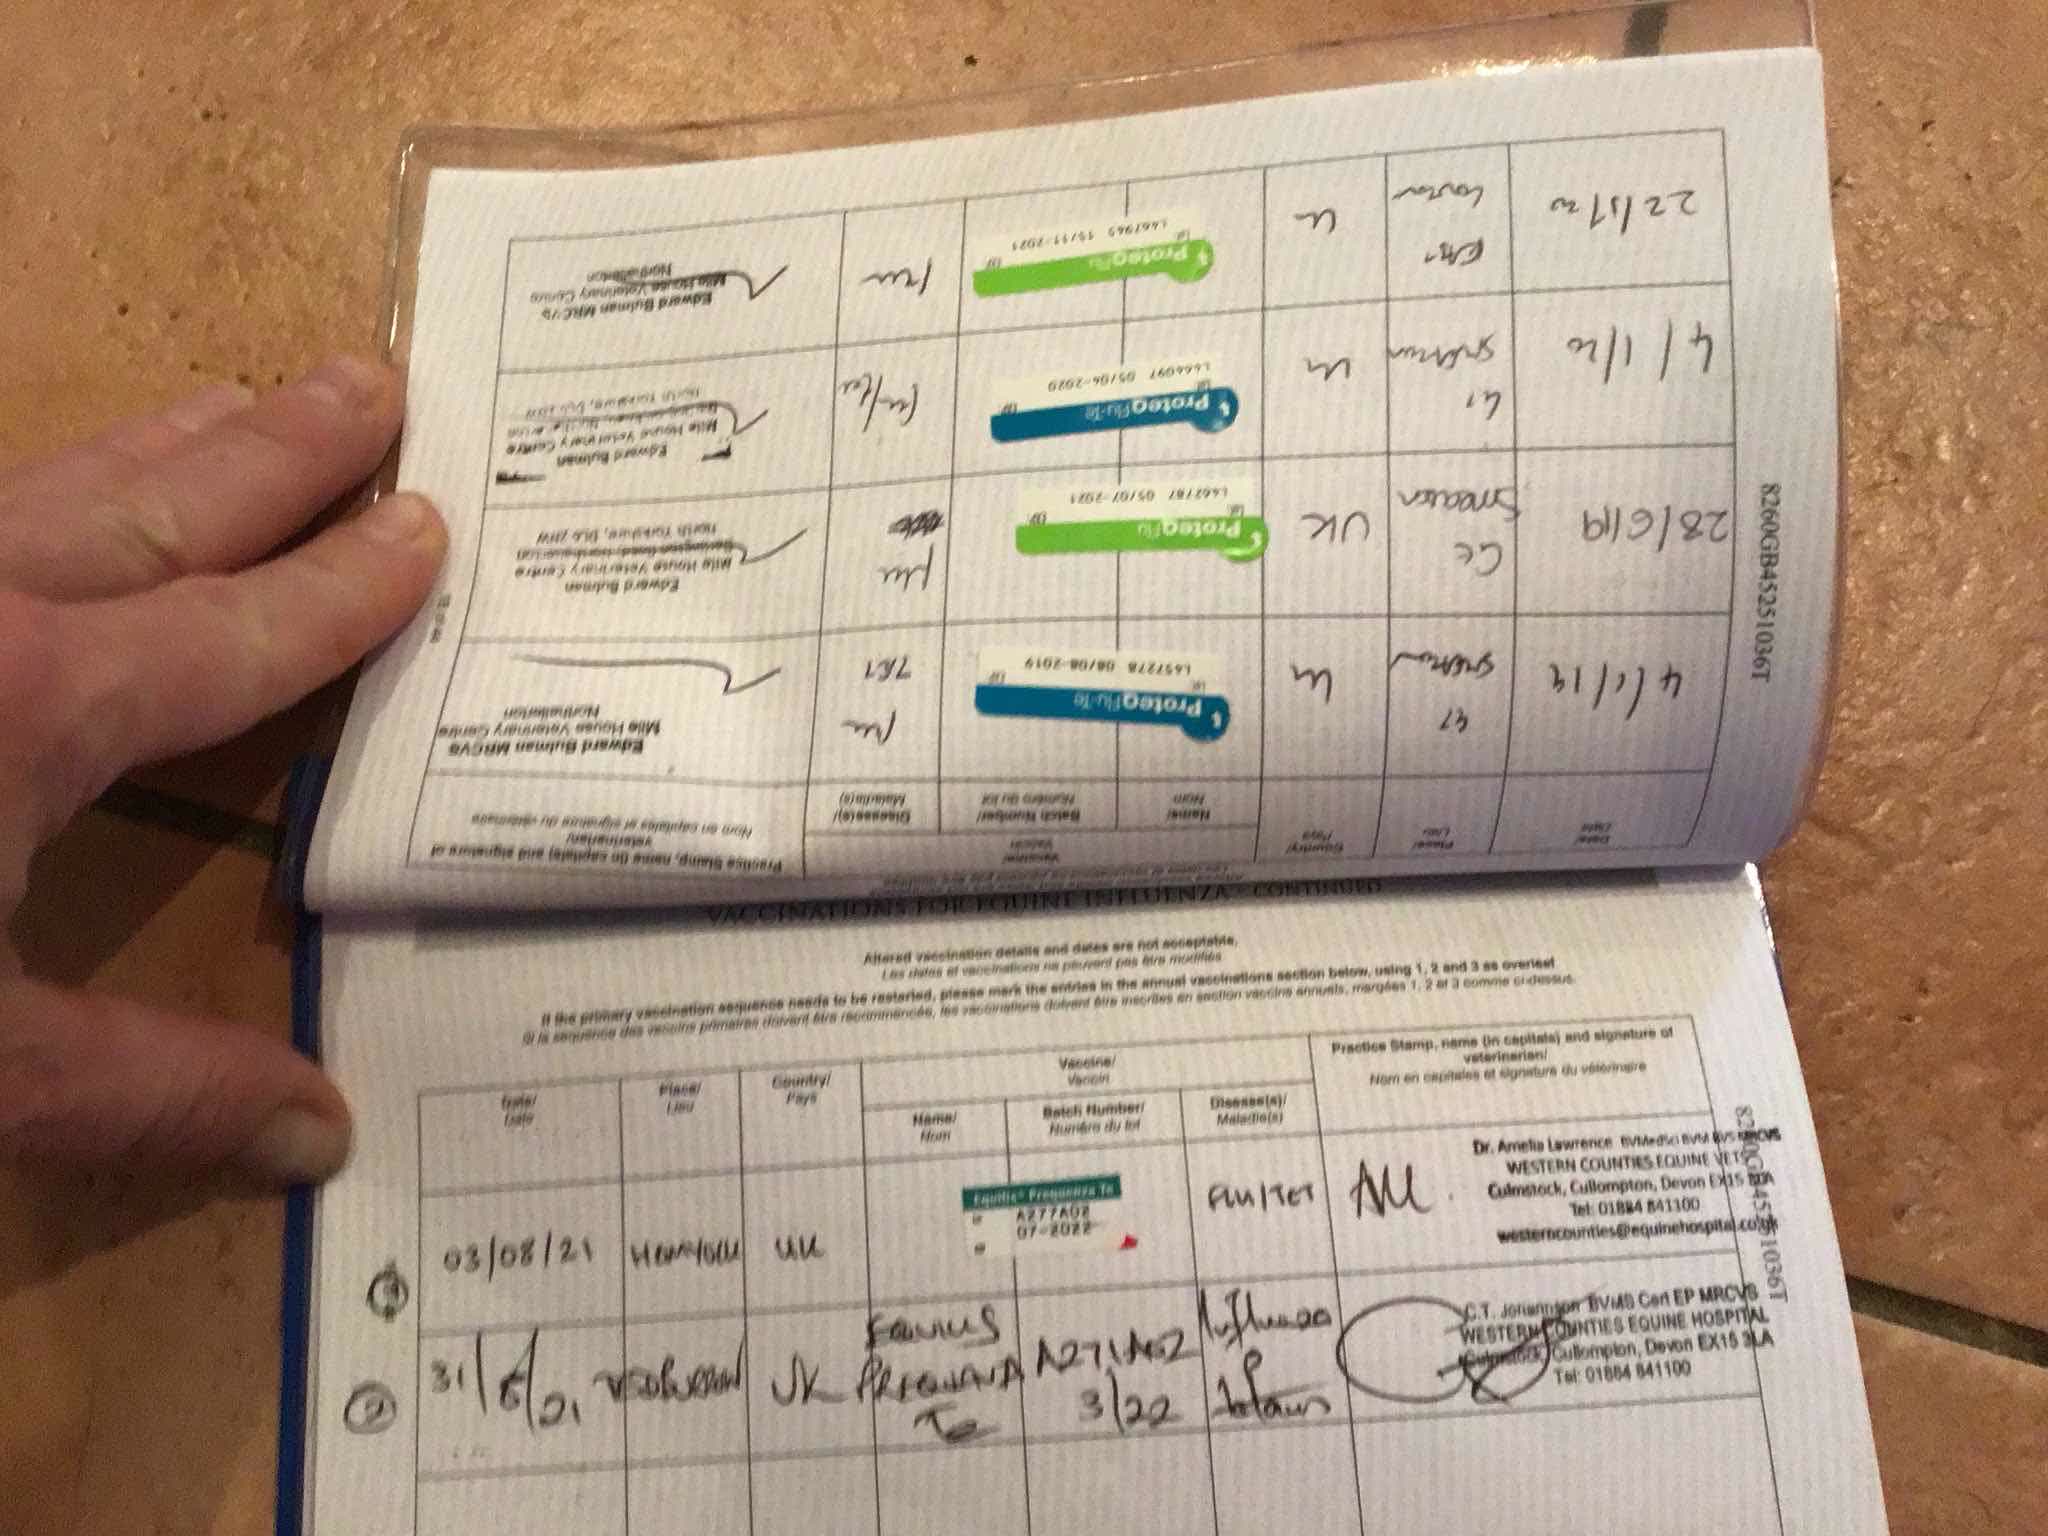 8260GB45251036T
Practice Stamp, name (in capitals) and signature of
veterinarian/
Nom en capitales et signature du vétérinaire
Date/
Date
Place/
Lieu
Country/
Pays
Vaccine/
Vaccin
Name/
Nom
Batch Number/
Numéro du lot
Disease(s)/
Maladie(s)
4/1/19
ProteqFlu-Te
L657278 08/08-2019
Flu
TET
Edward Bulman MRCVS
Mile House Veterinary Centre
Northallerton
28/6/19
UK
ProteqFlu
L662787 05/07-2021
Flu
Edward Bulman
Mile House Veterinary Centre
Darlington Road, Northallerton
North Yorkshire, DL6 2NW
4/1/20
ProteqFlu-Te
L666097 05/06-2020
Edward Bulman
Mile House Veterinary Centre
North Yorkshire, DL6 2NW
ProteqFlu
L667965 15/11-2021
Flu
Edward Bulman MRCVS
Mile House Veterinary Centre
Northallerton
VACCINATIONS FOR EQUINE INFLUENZA - CONTINUED
Altered vaccination details and dates are not acceptable.
Les dates et vaccinations ne peuvent pas être modifiés
If the primary vaccination sequence needs to be restarted, please mark the entries in the annual vaccinations section below, using 1, 2 and 3 as overleaf
Si la sequence des vaccins primaires doivent être recommencée, les vaccinations doivent être inscrites en section vaccins annuels, margées 1, 2 et 3 comme ci-dessus.
Date/
Date
Place/
Lieu
Country/
Pays
Vaccine/
Vaccin
Name/
Nom
Batch Number/
Numéro du lot
Disease(s)/
Maladie(s)
Practice Stamp, name (in capitals) and signature of
veterinarian/
Nom en capitales et signature du vétérinaire
03/08/21
HEMYOCK
UK
Equilis® Prequenza Te
A277A02
07-2022
FLU/TET
Dr. Amelia Lawrence BVMedSci BVM BVS MRCVS
WESTERN COUNTIES EQUINE VETS
Culmstock, Cullompton, Devon EX15 3LA
Tel: 01884 841100
westerncounties@equinehospital.co.uk
31/8/21
UK
EQUILIS
PREQUENZA
Te
A271A02
3/22
Influenza
&
Tetanus
C.T. Johannson BVMS Cert EP MRCVS
WESTERN COUNTIES EQUINE HOSPITAL
Culmstock, Cullompton, Devon EX15 3LA
Tel: 01884 841100
8260GB45251036T